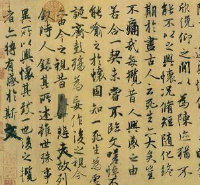 欣俛仰之間以為陳迹猶不
能不以之興懷況脩短隨化終
期於盡古人云死生亦大矣豈
不痛哉每攬昔人興感之由
若合一契未嘗不臨文嗟悼不
能喻之於懷固知一死生為虛
誕齊彭殤為妄作後之視今
由今之視昔悲夫故列
敘時人錄其所述雖世殊事
異所以興懷其致一也後之攬
者亦將有感於斯文